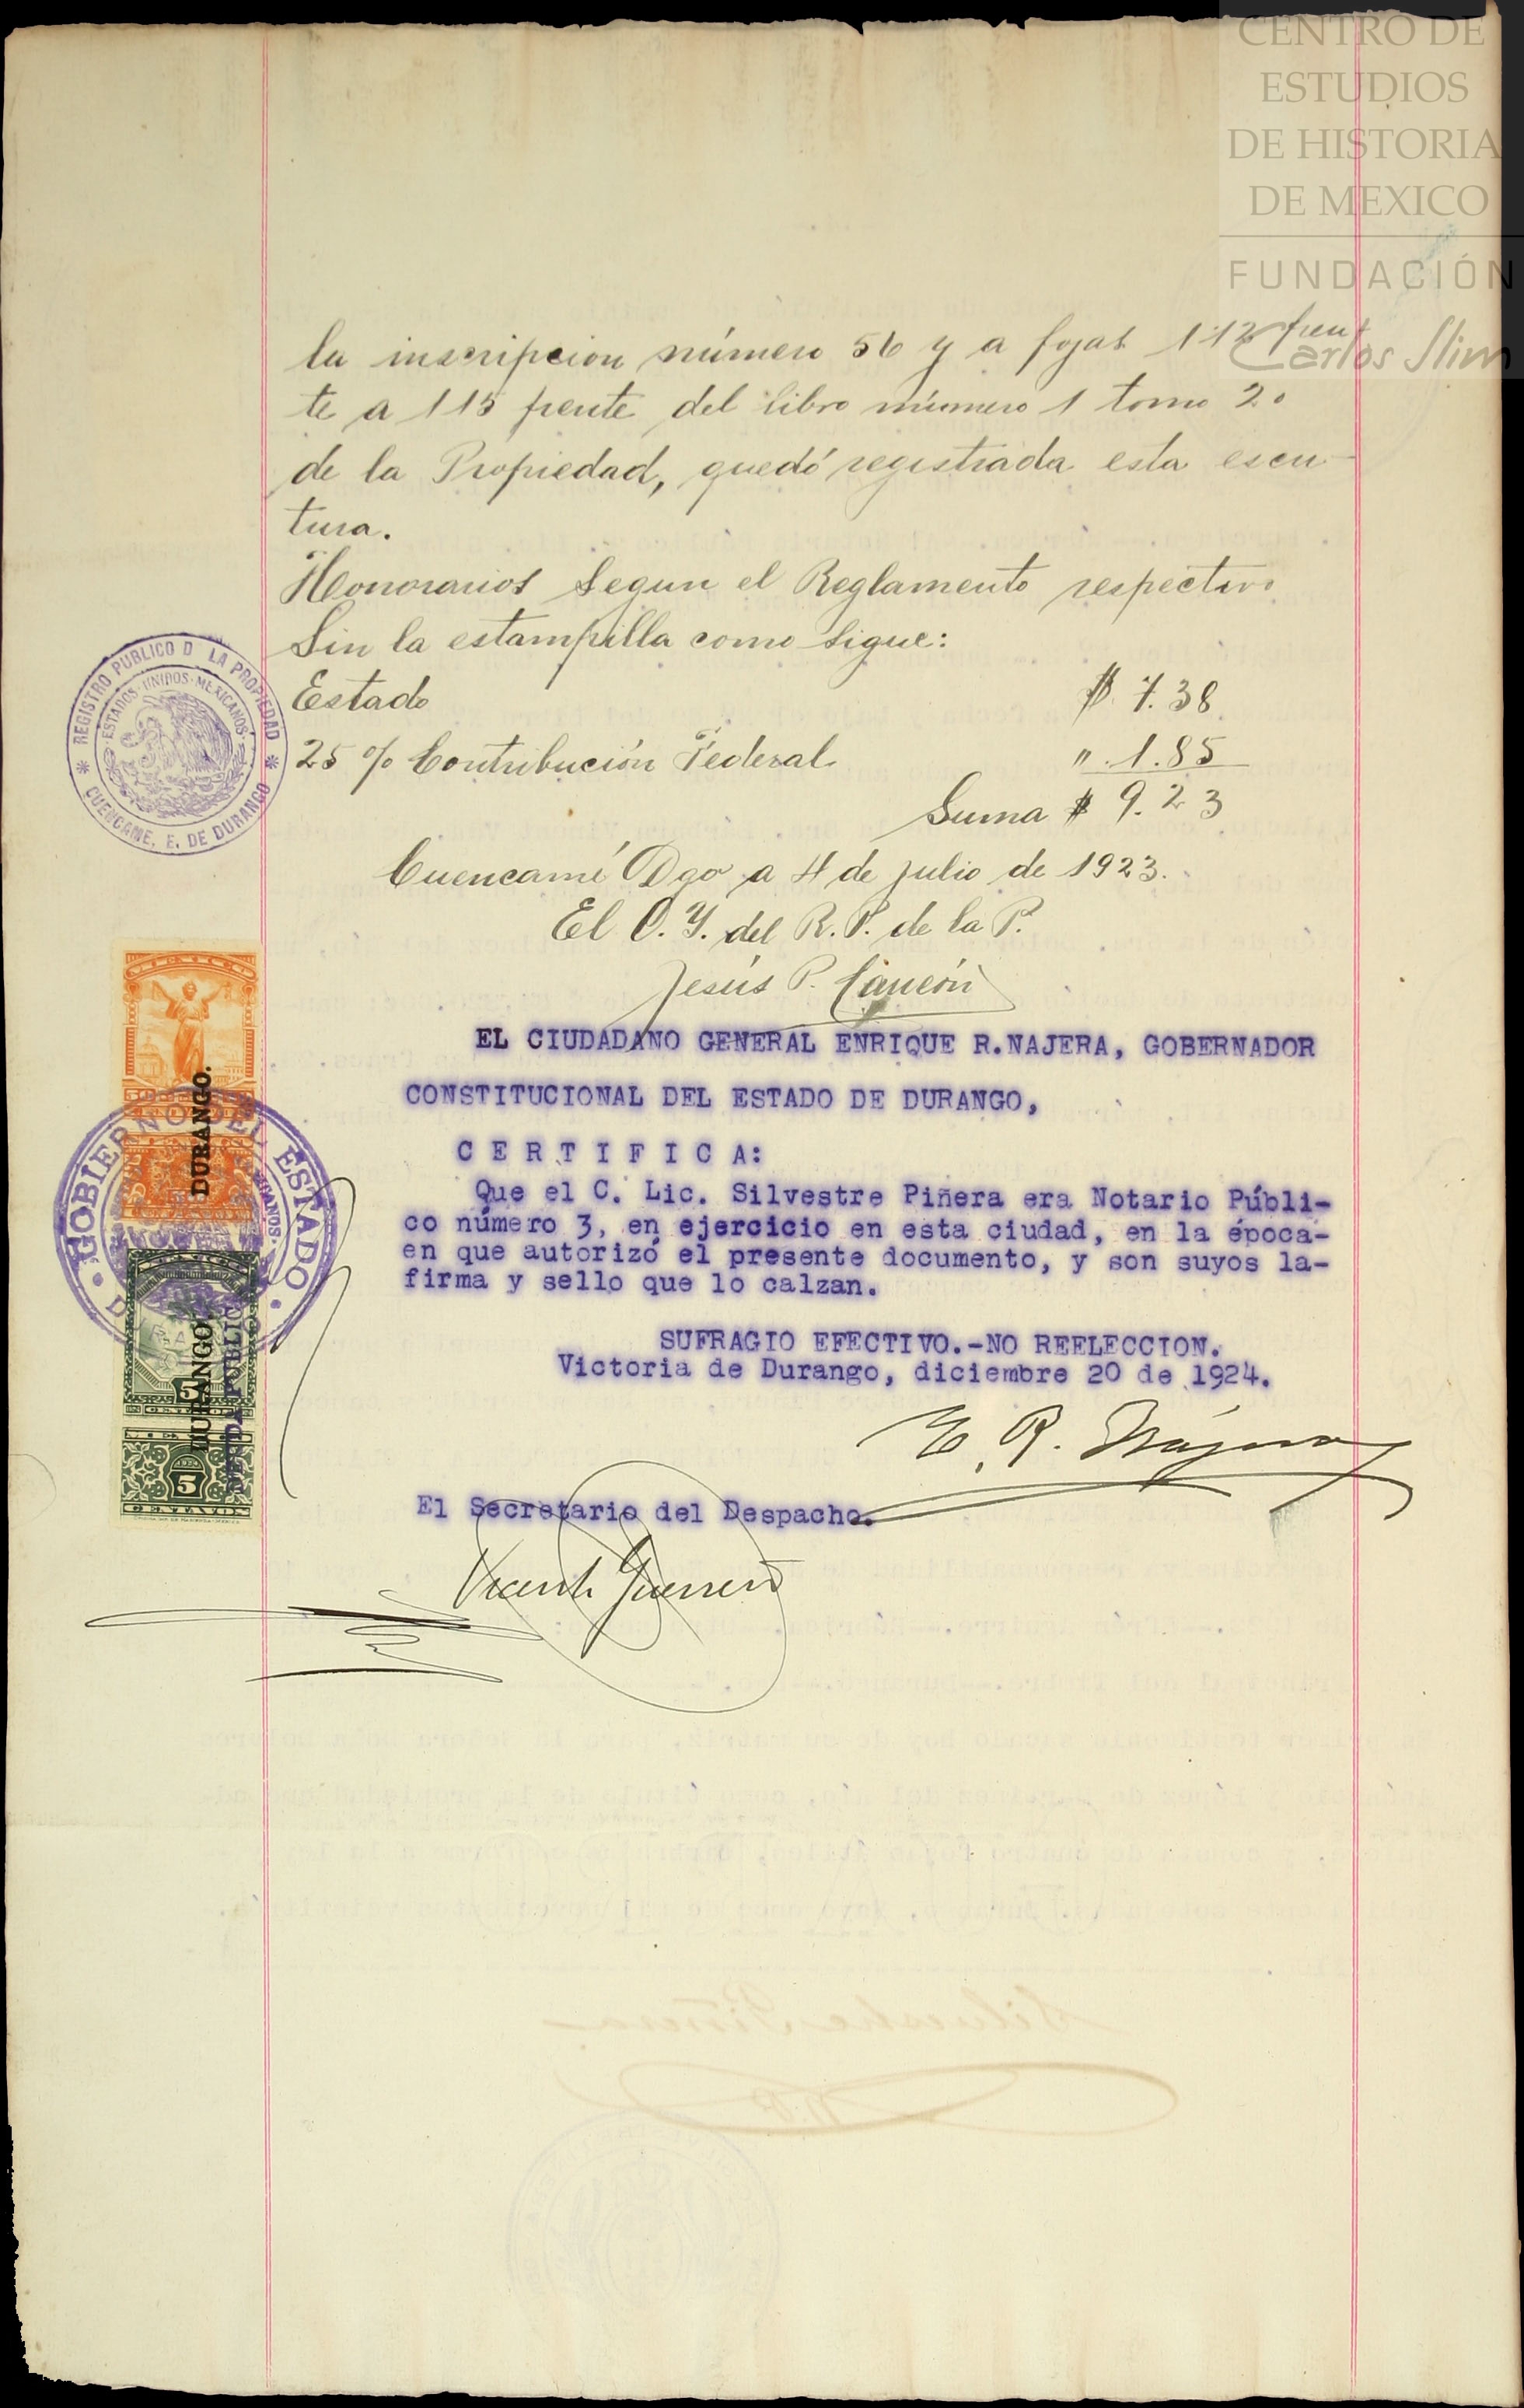 CENTRO DE
ESTUDIOS
DE HISTORIA
DE MEXICO
FUNDACIÓN
Carlos Slim
la inscripcion número 56 y a fojas 112 fren
te a 115 frente del libro número 1 tomo 2º
de la Propiedad, quedó registrada esta escri
tura.
Honorarios Segun el Reglamento respectivo
Sin la estampilla como sigue:
Estado $ 7.38
25 % Contribución Federal " 1.85
Suma $ 9.23
Cuencamé Dgo a 4 de julio de 1923.
El del R. P. de la P.
Jesús P.
REGISTRO PUBLICO D LA PROPIEDAD
ESTADOS UNIDOS MEXICANOS
CUENCAME, E. DE DURANGO
EL CIUDADANO GENERAL ENRIQUE R.NAJERA, GOBERNADOR
CONSTITUCIONAL DEL ESTADO DE DURANGO,
C E R T I F I C A:
Que el C. Lic. Silvestre Piñera era Notario Públi-
co número 3, en ejercicio en esta ciudad, en la época-
en que autorizó el presente documento, y son suyos la-
firma y sello que lo calzan.
SUFRAGIO EFECTIVO.-NO REELECCION.
Victoria de Durango, diciembre 20 de 1924.
E. R. Nájera
El Secretario del Despacho.
Vicente Guerrero
GOBIERNO DEL ESTADO
DURANGO.
DURANGO.
5
5